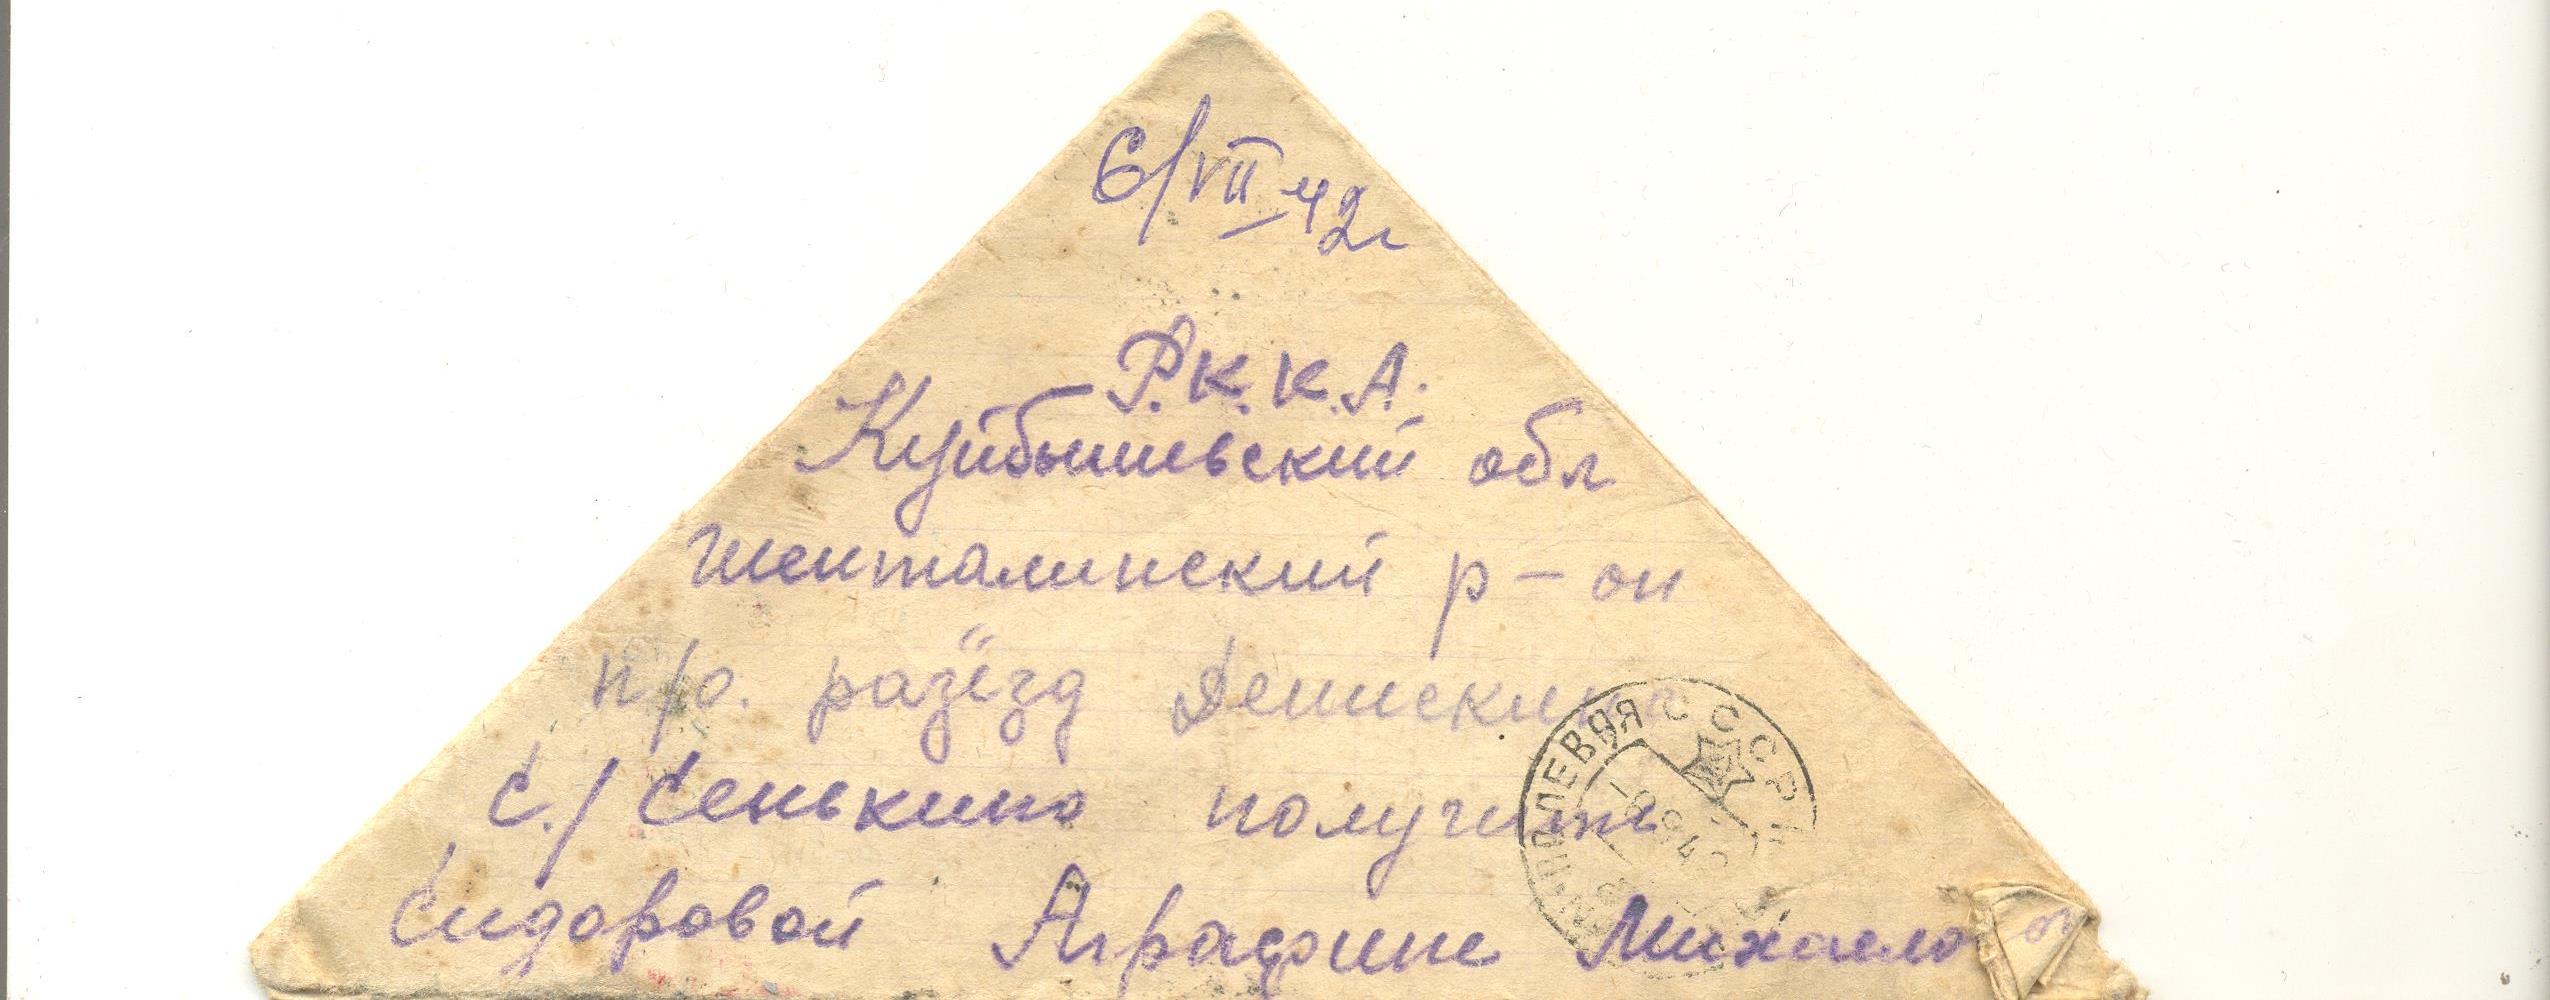 6/VII-42г
Р.К.К.А.
Куйбышевский обл
Шенталинский р-он
п/о. разъезд Денискино
с./ Сенькино получите
Сидоровой Аграфине Михайло
ПОЛЕВАЯ СССР